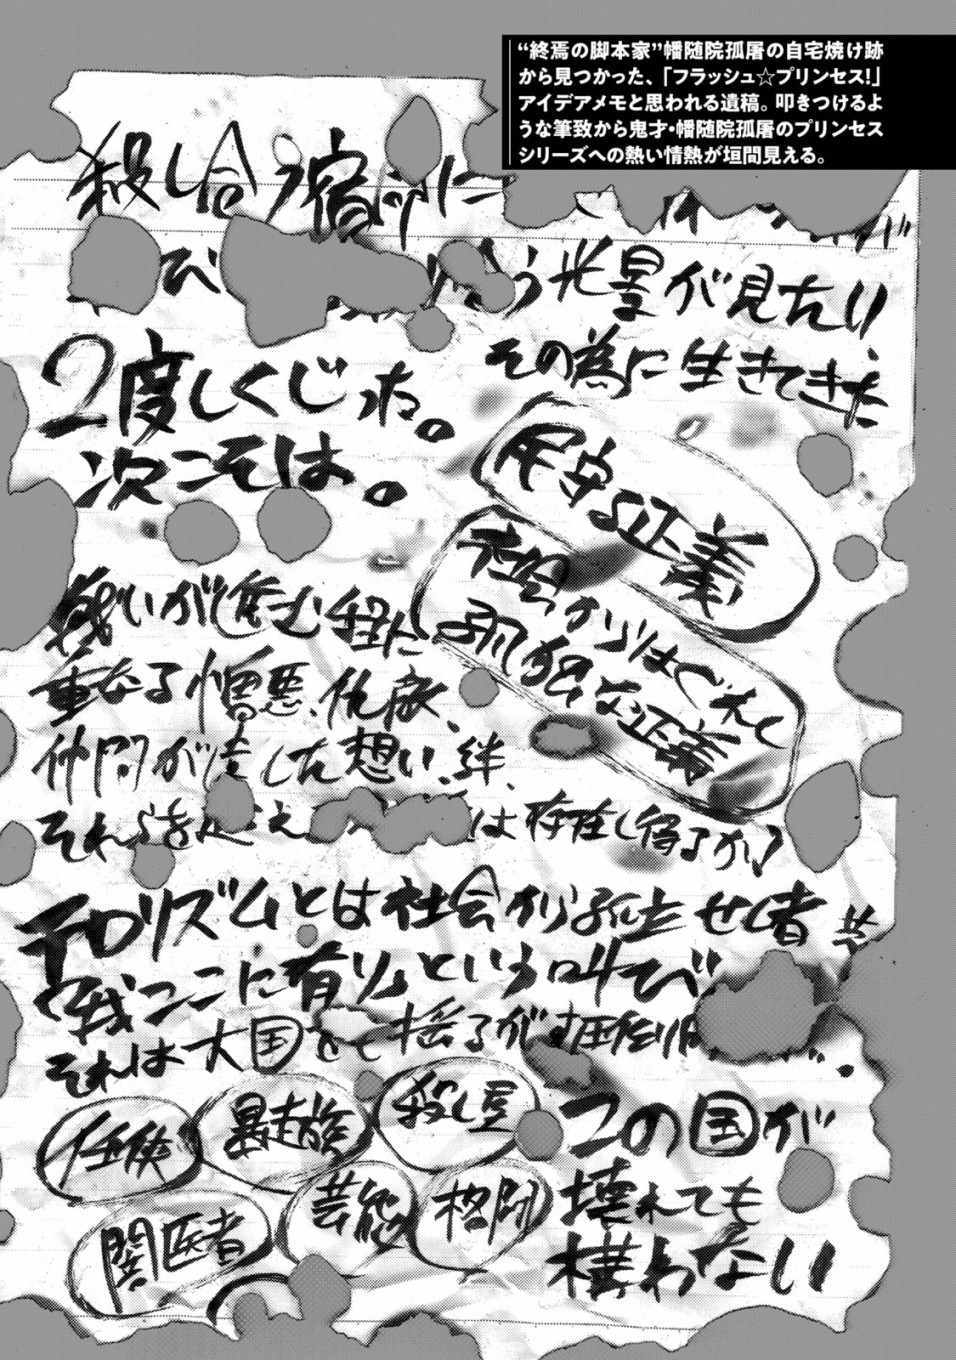 “終焉の脚本家”幡随院孤屠の自宅焼け跡
から見つかった、「フラッシュ☆プリンセス!」
アイデアメモと思われる遺稿。叩きつけるよ
うな筆致から鬼才・幡随院孤屠のプリンセス
シリーズへの熱い情熱が垣間見える。
殺し合う宿命に
が
び
う光景が見たい
その為に生きてきた
2度しくじった。
次こそは。
民守る正義
社会からはぐれし
孤独な正義
戦いが進む程に
重なる憎悪、仇敵、
仲間が遺した想い、絆、
それらを超え
は存在し得るか?
テロリズムとは社会から孤立せし者共
我ここに有りという叫び
それは大国をも揺るがす圧倒的
この国が
壊れても
構わない
任侠
暴走族
殺し屋
闇医者
芸能
格闘